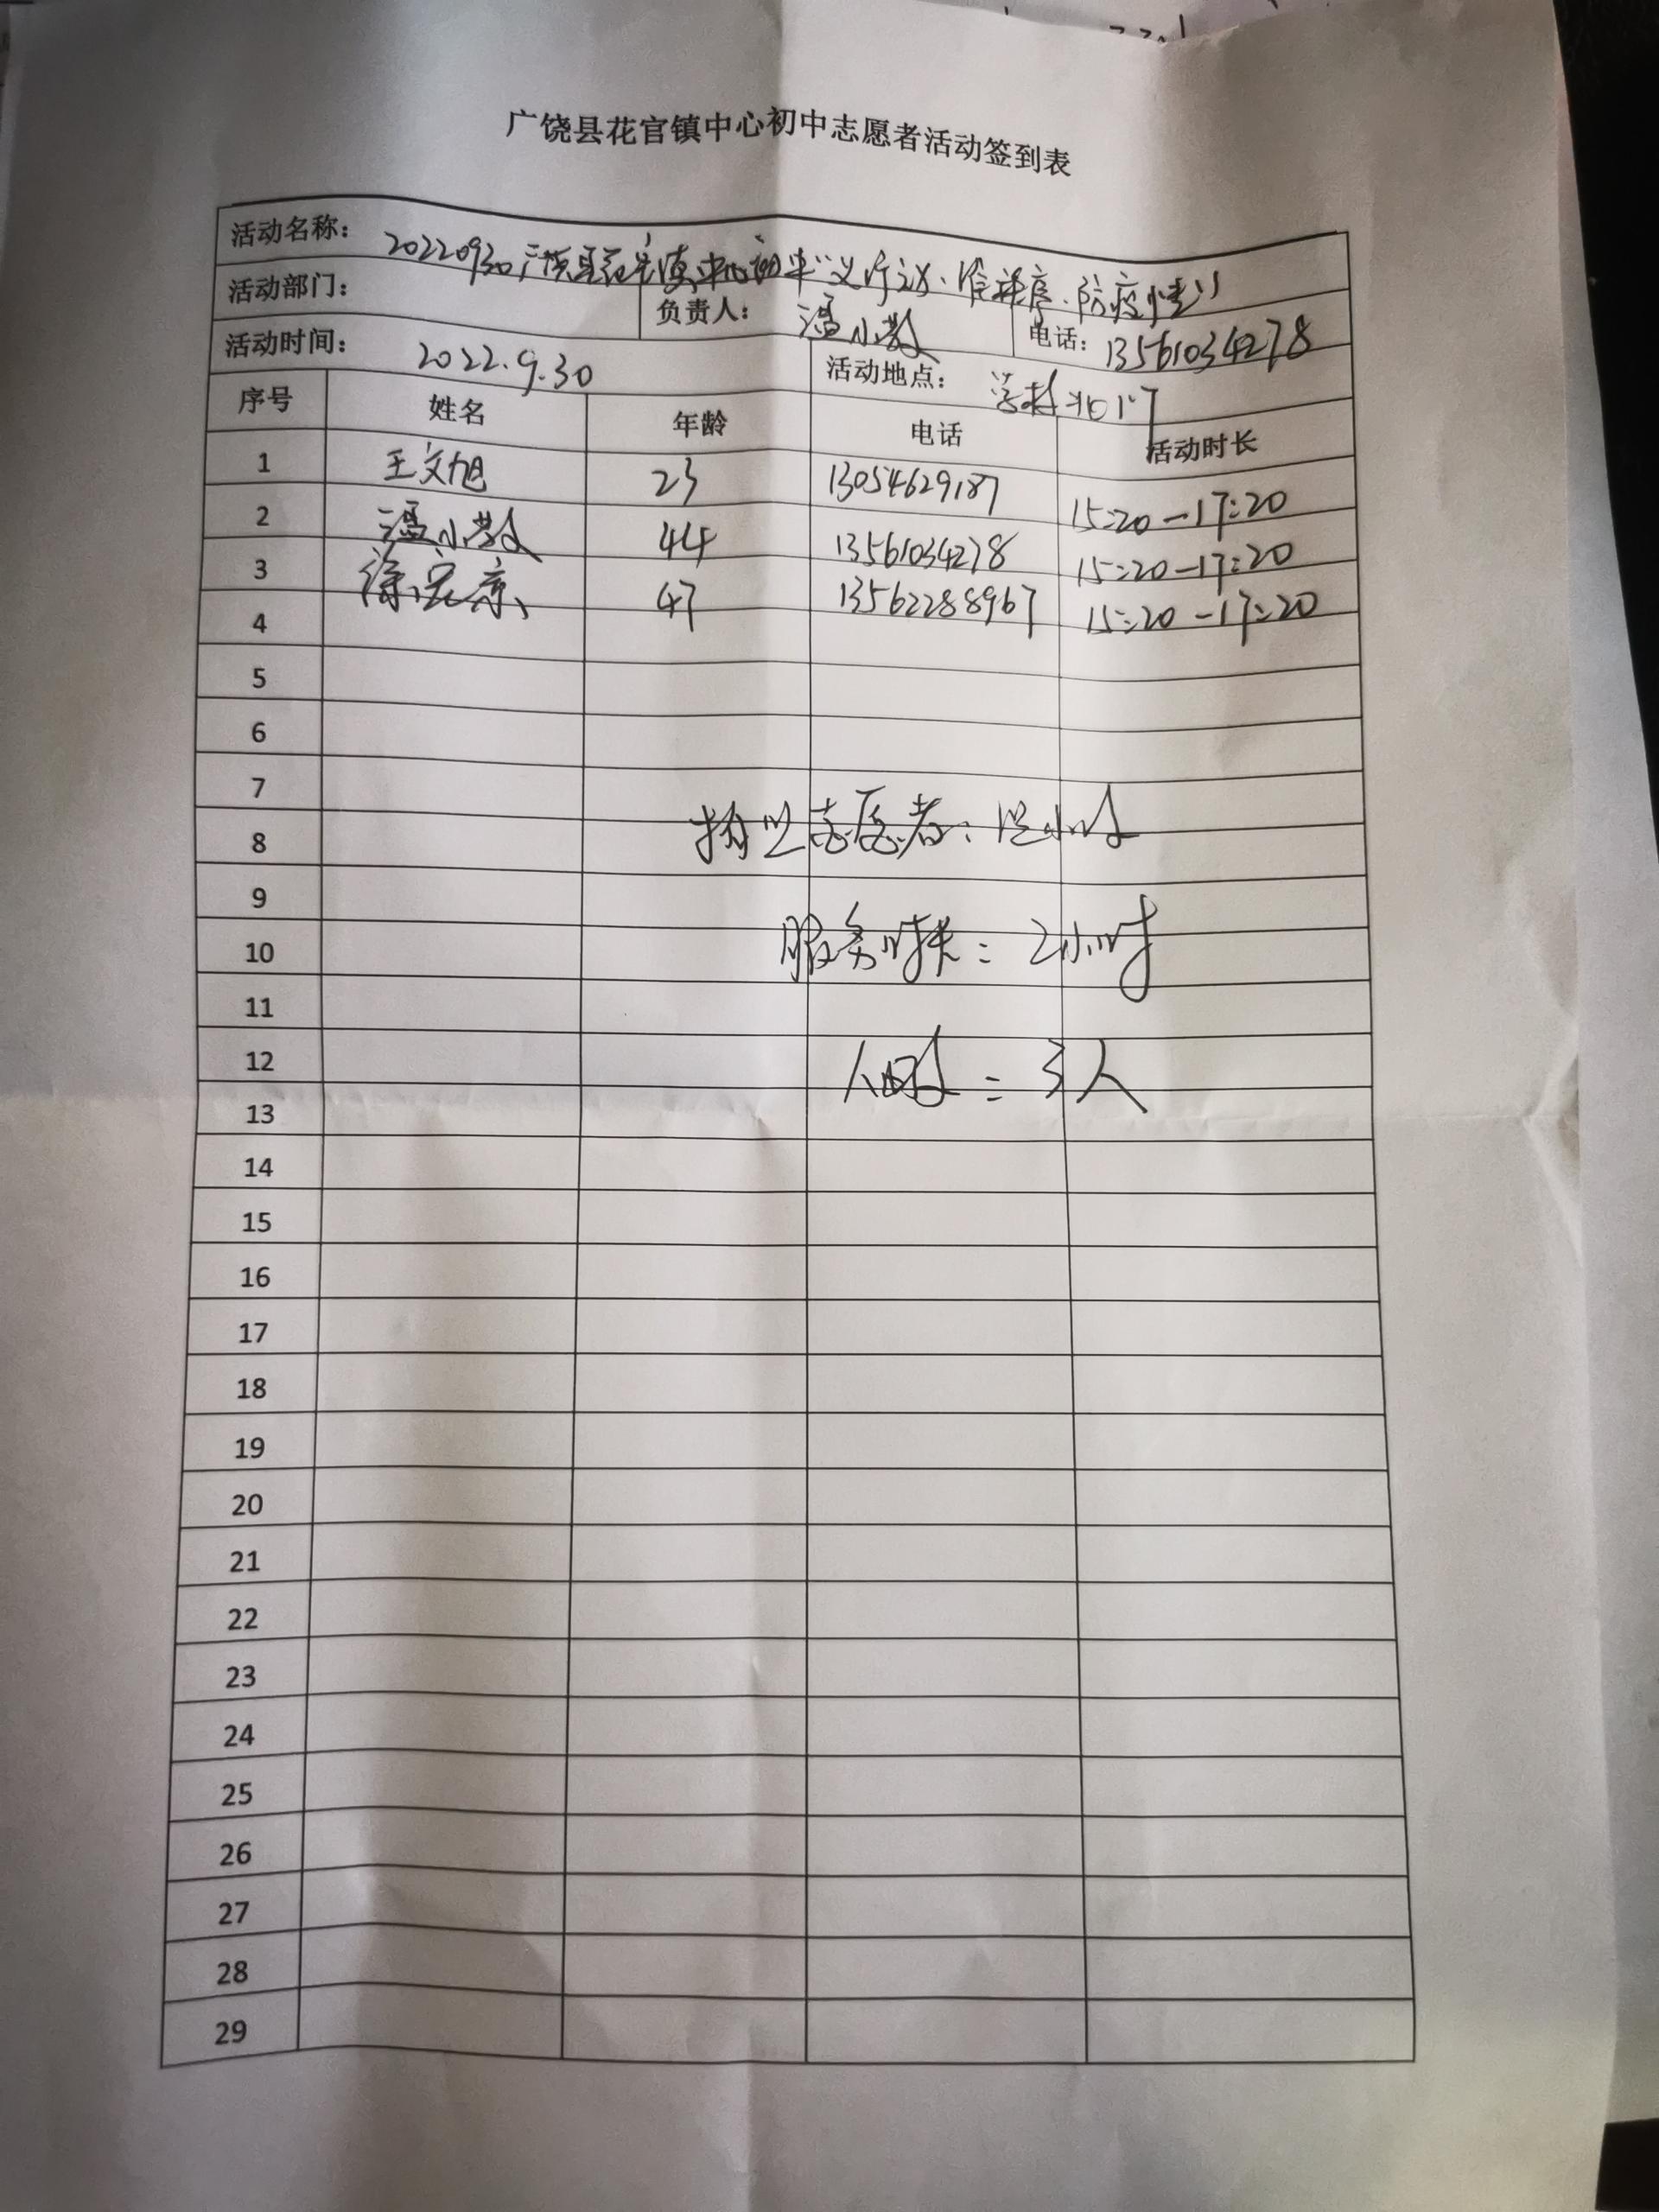 广饶县花官镇中心初中志愿者活动签到表
活动名称： 20220930广饶县花官镇中心初中“义行 防疫
活动部门： 负责人： 温小教 电话： 13561034278
活动时间： 2022.9.30 活动地点： 学校北门
序号 姓名 年龄 电话 活动时长
1 王文旭 23 13054629187 15:20-17:20
2 温小教 44 13561034278 15:20-17:20
3 徐 47 13562288967 15:20-17:20
4
5
6
7
志愿者：
8
9
服务时长： 2小时
10
11
12
人 ： 3人
13
14
15
16
17
18
19
20
21
22
23
24
25
26
27
28
29